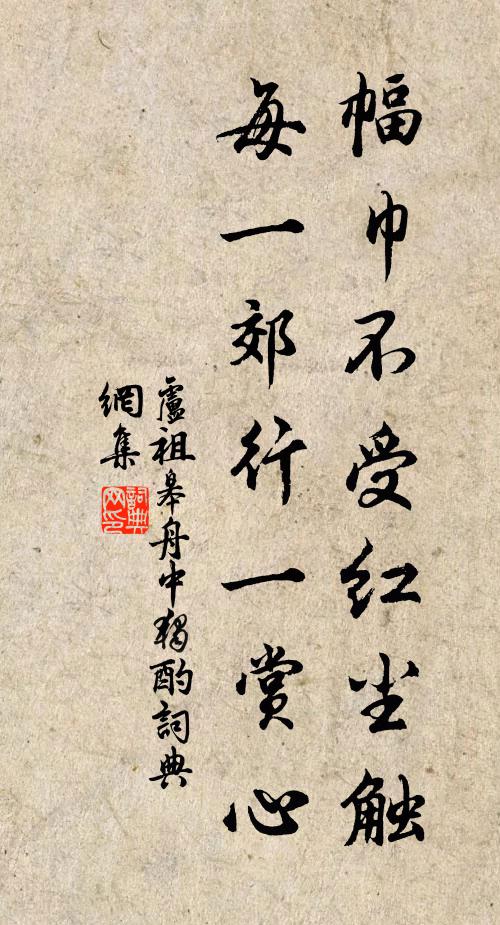 幅巾不受红尘触
每一郊行一赏心
盧祖皋舟中獨酌詞典
網集
詞典网印